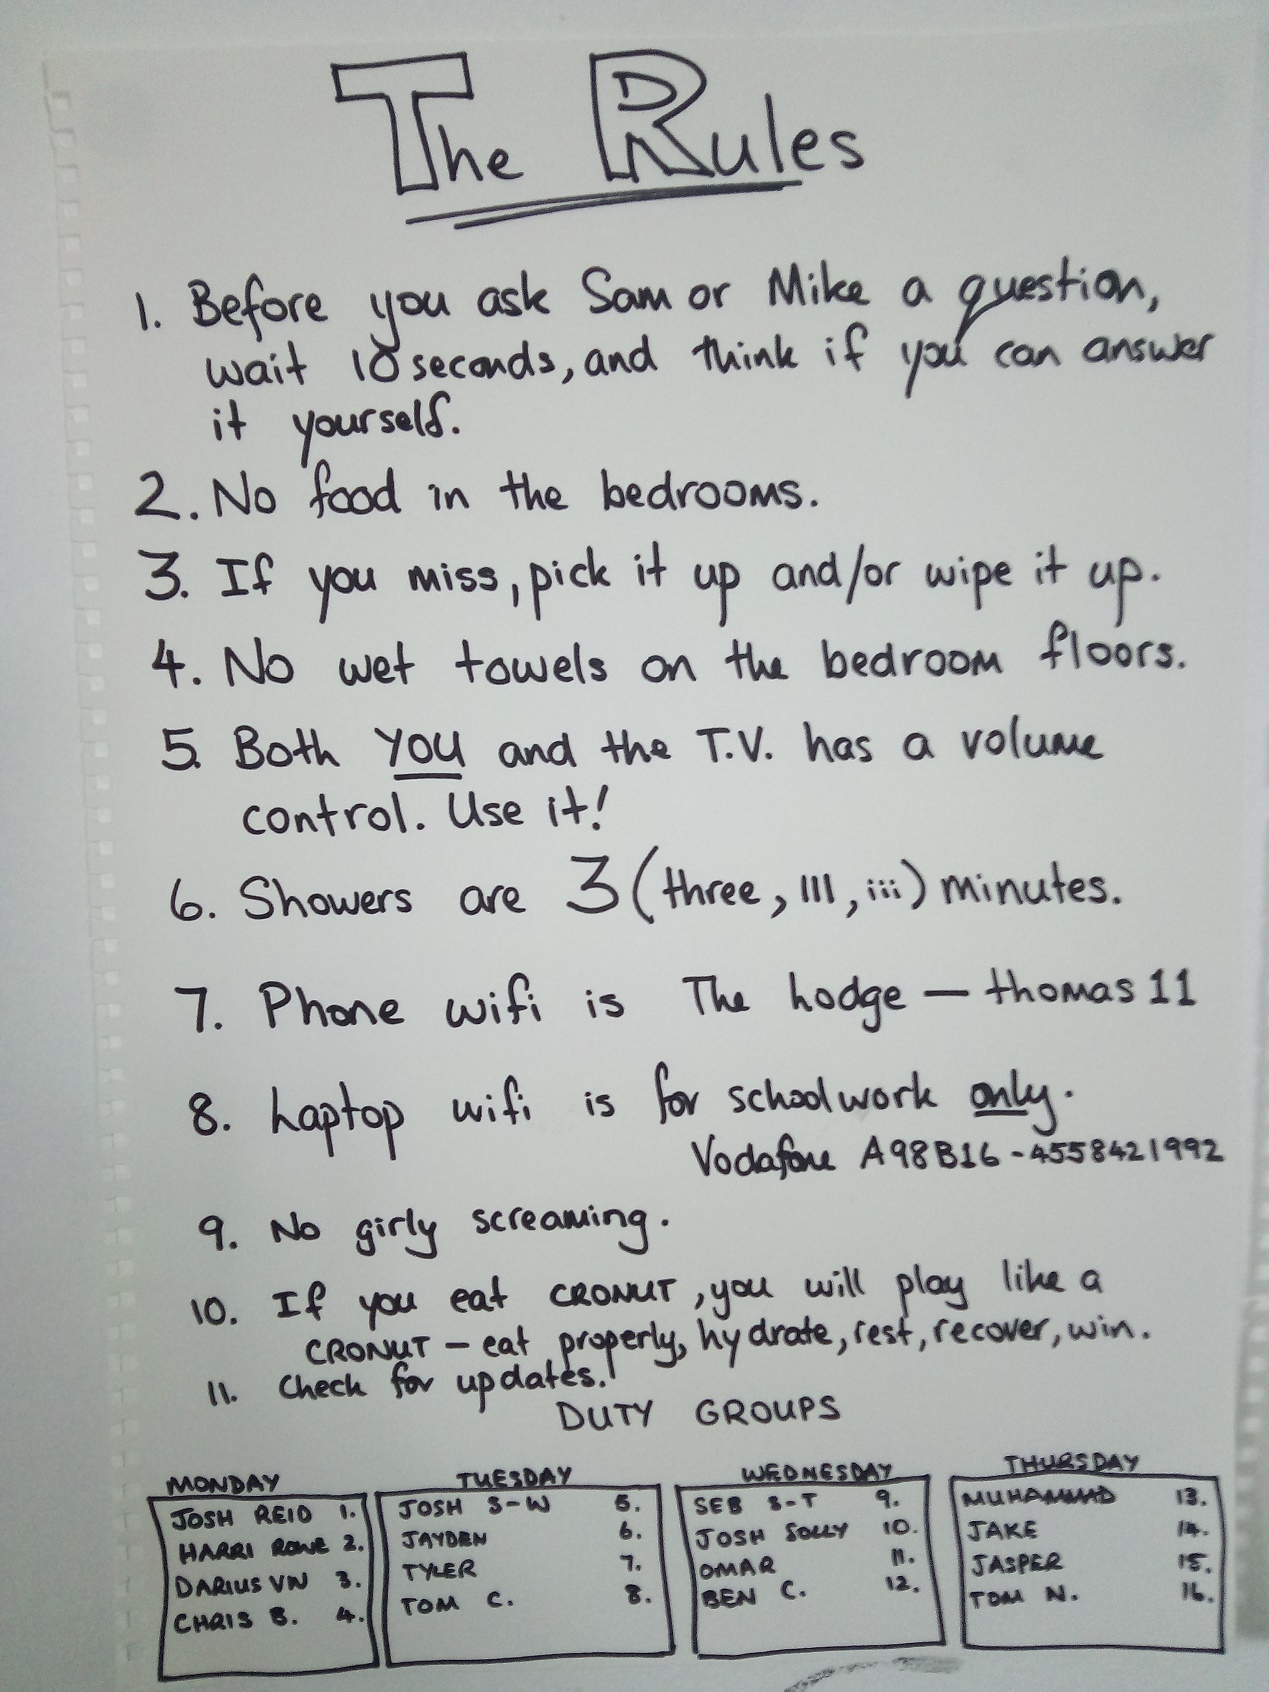 The Rules
1. Before you ask Sam or Mike a question,
wait 10 seconds, and think if you can answer
it yourself.
2. No food in the bedrooms.
3. If you miss, pick it up and/or wipe it up.
4. No wet towels on the bedroom floors.
5. Both YOU and the T.V. has a volume
control. Use it!
6. Showers are 3 (three, III, iii) minutes.
7. Phone wifi is The hodge — thomas11
8. Laptop wifi is for schoolwork only.
Vodafone A98B16 - 4558421992
9. No girly screaming.
10. If you eat CRONUT, you will play like a
CRONUT — eat properly, hydrate, rest, recover, win.
11. Check for updates.
DUTY GROUPS
MONDAY TUESDAY WEDNESDAY THURSDAY
JOSH REID 1. JOSH S-W 5. SEB S-T 9. MUHAMMAD 13.
HARRI ROWE 2. JAYDEN 6. JOSH SOLLY 10. JAKE 14.
DARIUS VN 3. TYLER 7. OMAR 11. JASPER 15.
CHRIS B. 4. TOM C. 8. BEN C. 12. TOM N. 16.